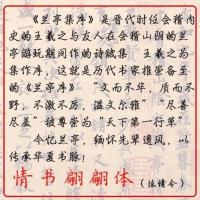 《兰亭集序》是晋代时任会稽内
史的王羲之与友人在会稽山阴的兰
亭游玩期间作的诗歌集，王羲之为
集作序，这就是历代书家推崇备至
的《兰亭集序》。“文而不华，质而不
野，不激不厉，温文尔雅”“尽善
尽美”被尊崇为“天下第一行草”
今忆兰亭，缅怀先辈遗风，以
传承华夏书脉！
情书翩翩体（陈情令）